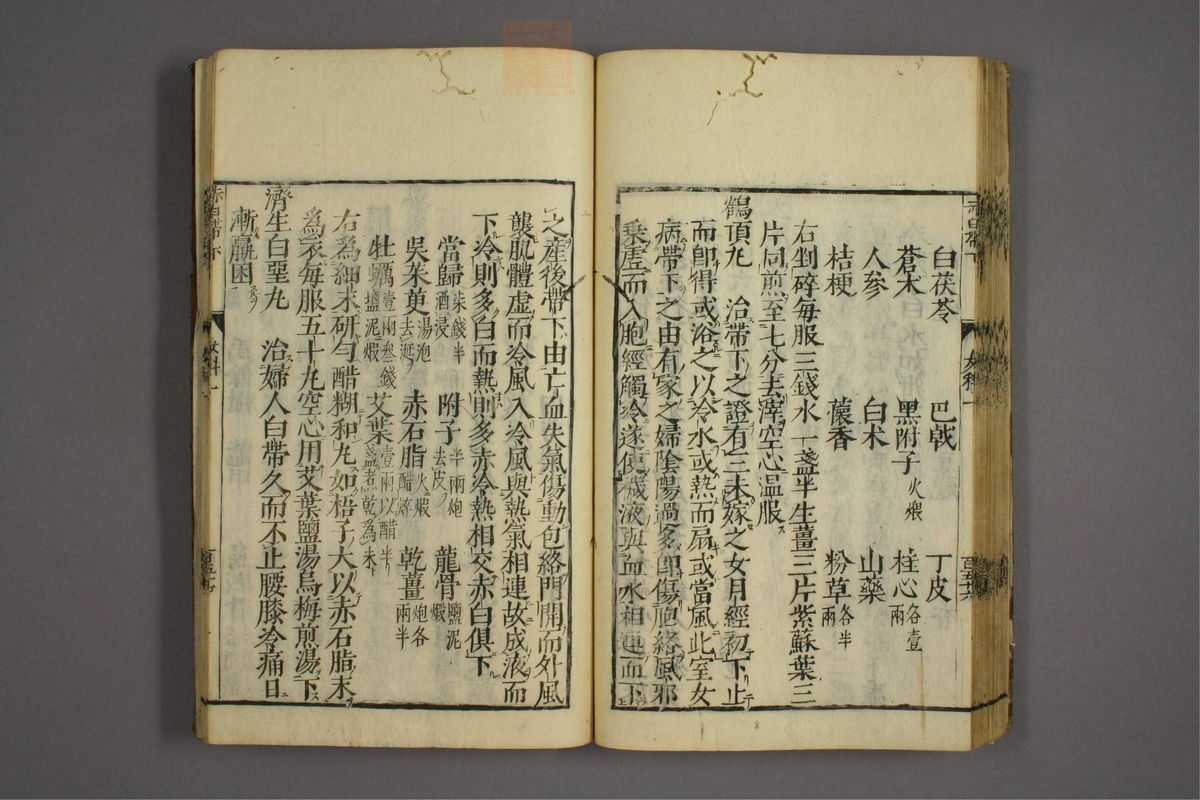 白茯苓　巴戟　丁皮
蒼朮　黑附子火煨　桂心各壹兩
人參　白朮　山藥
桔梗　藿香　粉草各半兩
右剉碎每服三錢水一盞半生薑三片紫蘇葉三
片同煎至七分去滓空心温服
鶴頂丸　治帶下之證有三未嫁之女月經初下止
而卽得或浴之以冷水或熱而扇或當風此室女
病帶下之由有家之婦陰陽過多卽傷胞絡風邪
乗虛而入胞經觸冷遂使穢液與血水相連而下
之產後帶下由亡血失氣傷動包絡門開而外風
襲肌體虛而冷風入冷風與熱氣相連故成液而
下冷則多白而熱則多赤冷熱相交赤白俱下
當歸柒錢半酒浸　附子半兩炮去皮　龍骨鹽泥煅
吳茱萸湯泡去涎　赤石脂火煅醋淬　乾薑炮各兩半
牡蠣壹兩叁錢塩泥煅　艾葉壹兩以醋半盞煮乾為末
右為細末研匀醋糊和丸如梧子大以赤石脂末
為衣每服五十丸空心用艾葉鹽湯烏梅煎湯下
濟生白堊丸　治婦人白帶久而不止腰膝冷痛日
漸羸困
赤白帶下　女科一